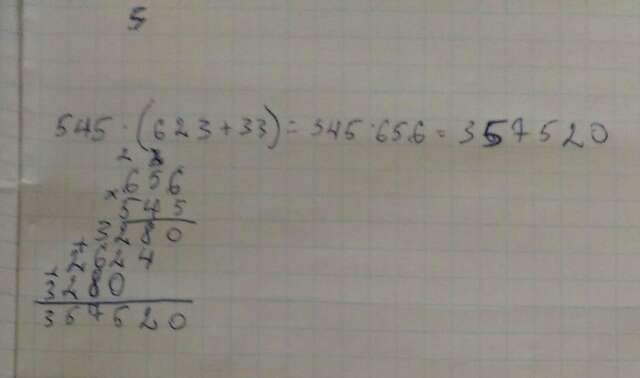 5
545 · (623+33) = 345·656 = 357520
2 2
656
× 545
3280
+ 2624
3280
357520